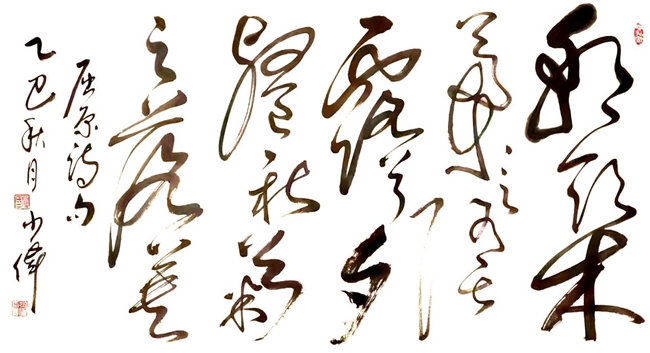 朝饮木
兰之坠
露兮夕
餐秋菊
之落英
屈原诗句
乙巳秋月 小偉